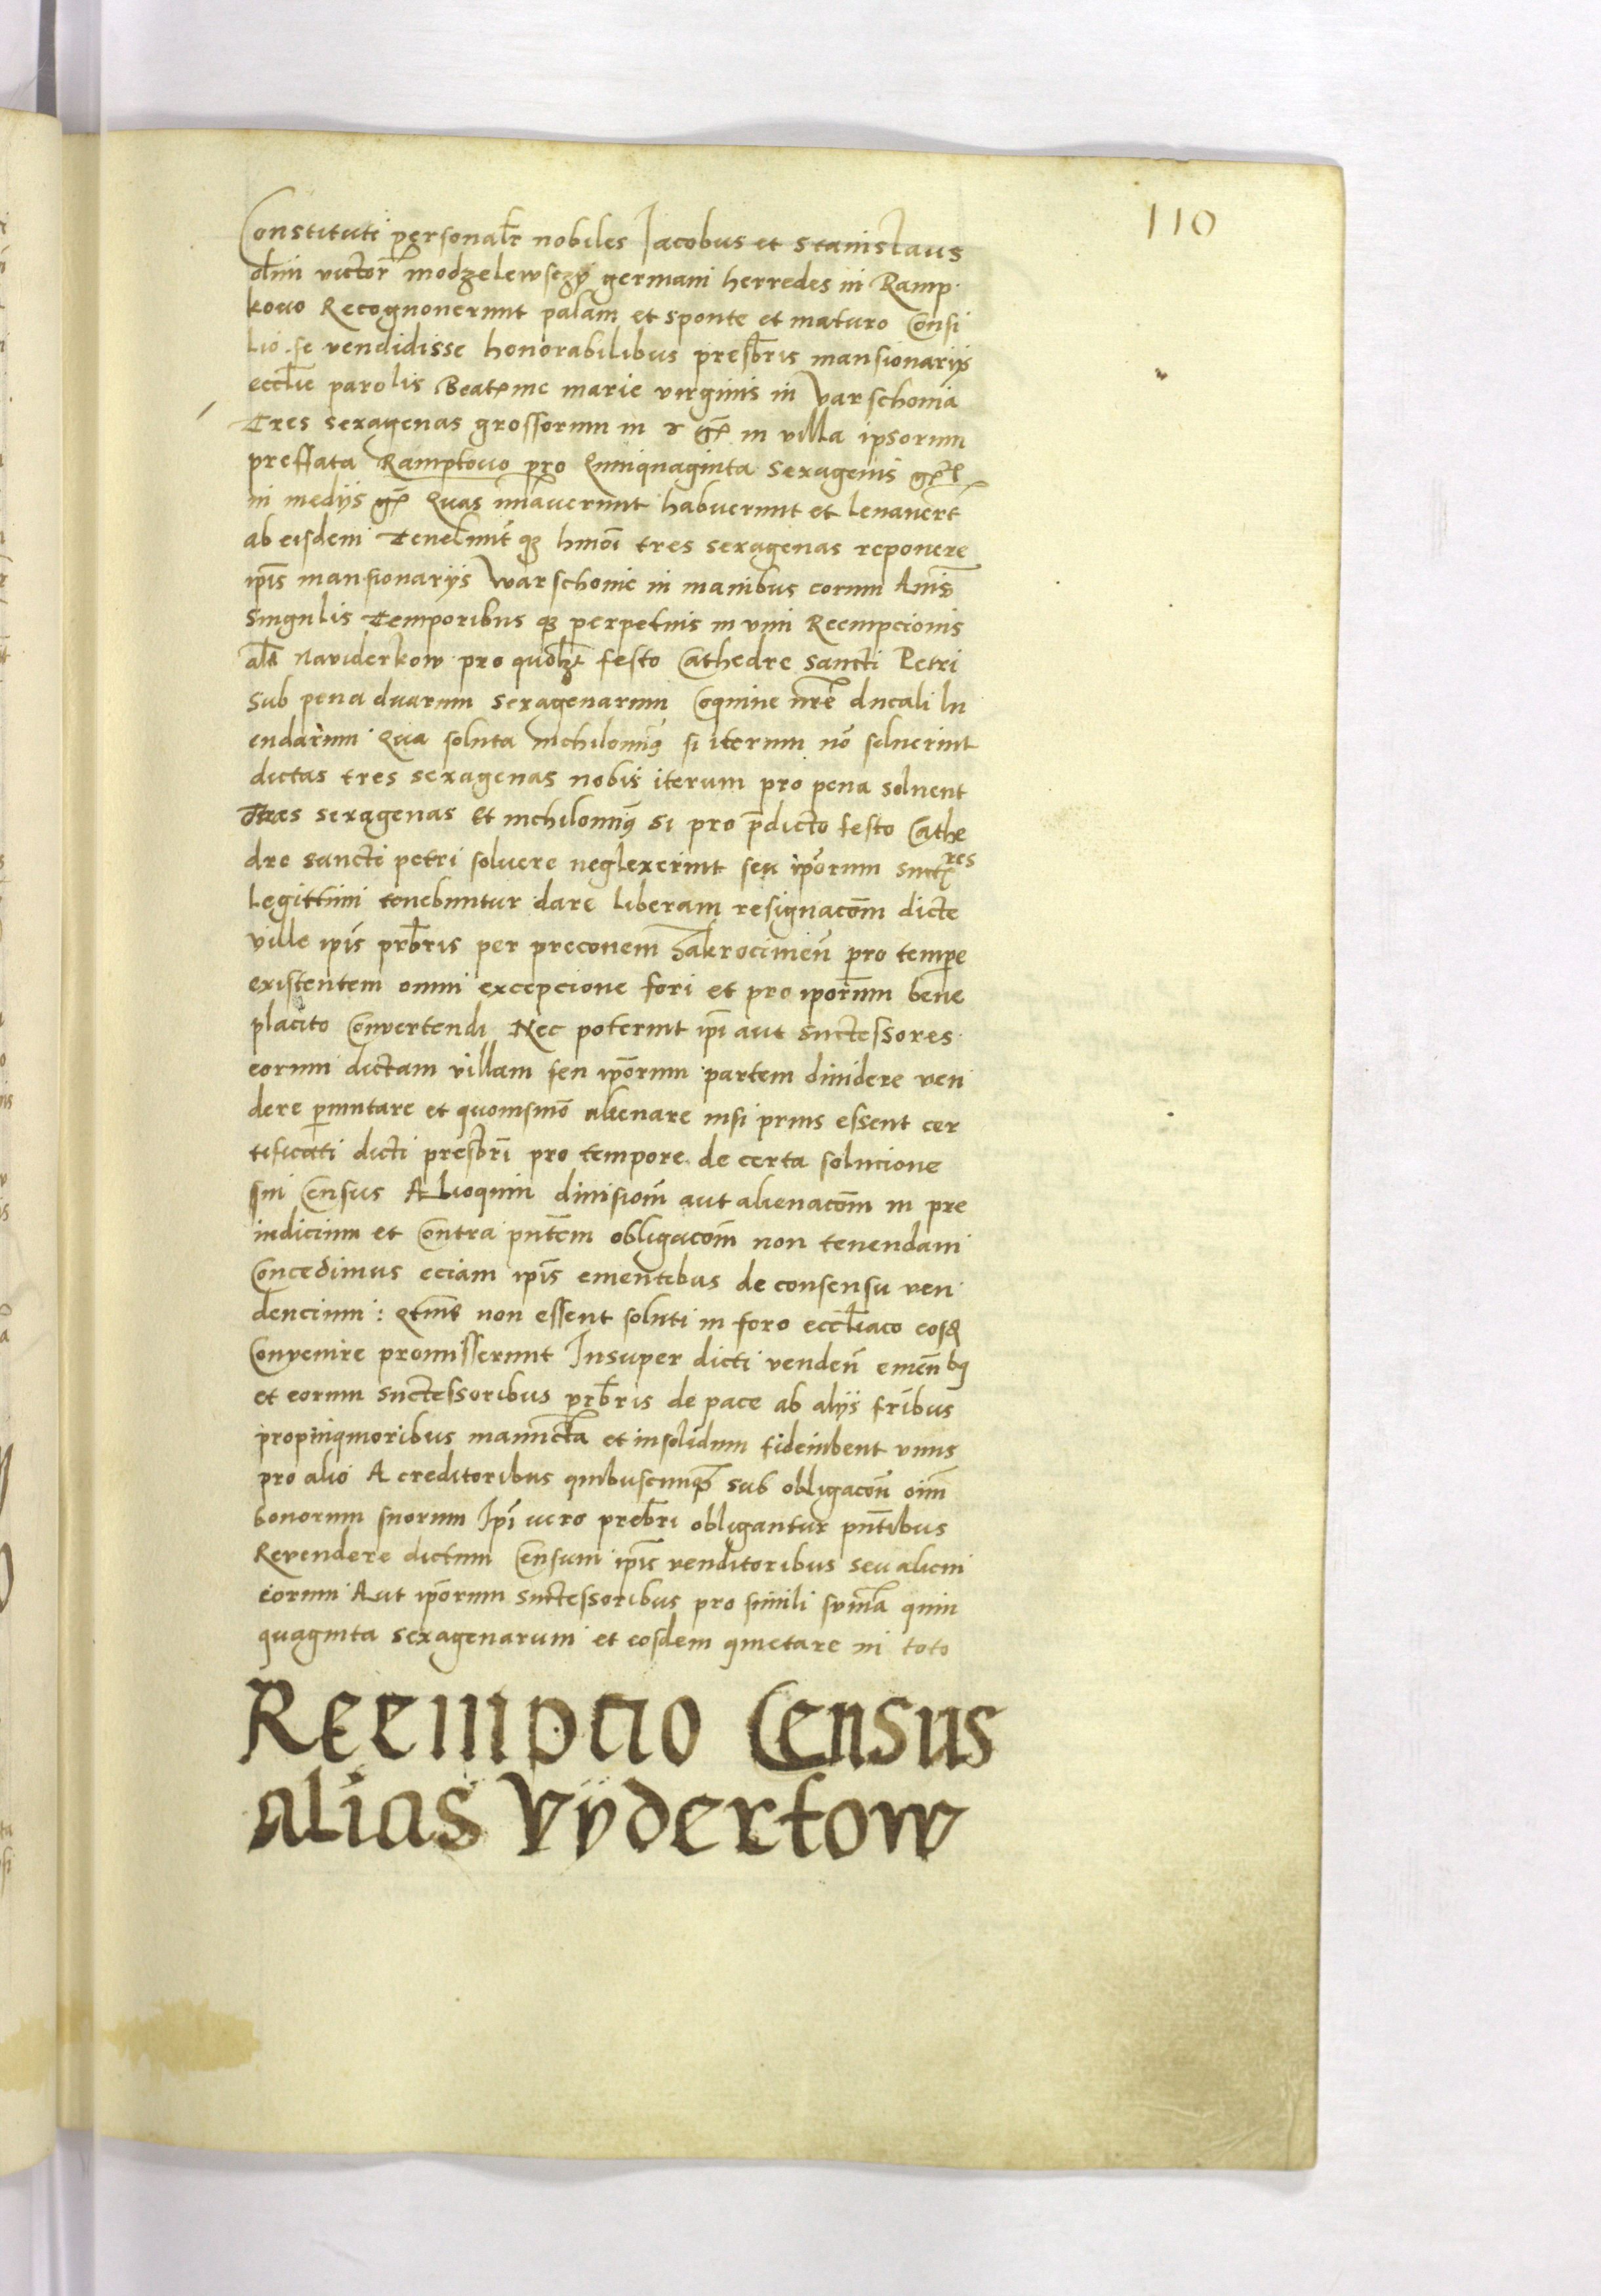 110
Constituti personalr nobiles Jacobus et Stanislaus
olim victor modzelewsczy germani herredes in Ramp
kovo Recognoverunt palam et sponte et maturo Consi
lio se vendidisse honorabilibus presbris mansionarijs
ecclie parolis Beatme marie virginis in Varschovia
Tres sexagenas grossorum in villa ipsorum
preffata Rampkovo pro Quinquaginta sexagenis
in medijs gr Quas habuerunt et levavert
ab eisdem Tenebunt hmoi tres sexagenas reponere
ipis mansionarijs Warschovie in manibus eorum Anis
Singulis Temporibus perpetuis in vim Reempcionis
als naviderkow pro quolzt festo Cathedre Sancti Petri
Sub pena duarum sexagenarum Coquine nre ducali lu
endarum Qua soluta nichilomin si iterum no solverint
dictas tres sexagenas nobis iterum pro pena solvent
Tres sexagenas Et nichilomin Si pro pdicto festo Cathe
dre sancti petri solvere neglexerint seu iporum sucres
Legittimi tenebuntur dare liberam resignacom dicte
ville ipis prbris per preconem Zakrocimien pro tempe
existentem omni excepcione fori et pro iporum bene
placito Convertendi Nec poterint ipi aut successores
eorum dictam villam seu iporum partem dividere ven
dere pmutare et quovismo alienare nisi prius essent cer
tificati dicti presbri pro tempore de certa solucione
sui Census Alioquin divisiom aut alienacom in pre
iudicium et Contra pntem obligacom non tenendam
Concedimus eciam ipis ementibus de consensu ven
dencium : non essent soluti in foro eccliaco eosd
Convenire promisserunt Insuper dicti venden emenbq
et eorum successoribus prbris de pace ab alijs fribus
propinquioribus maniuncta et insolidum fideiubent unus
pro alio A creditoribus quibuscunq sub obligacon oim
bonorum suorum Ipi vero prebri obligantur pntibus
Revendere dictum Censum ipis venditoribus seu alicui
eorum Aut iporum Successoribus pro simili suma quin
quaginta sexagenarum et eosdem quietare in toto
Reemptio Census
alias vyderkow